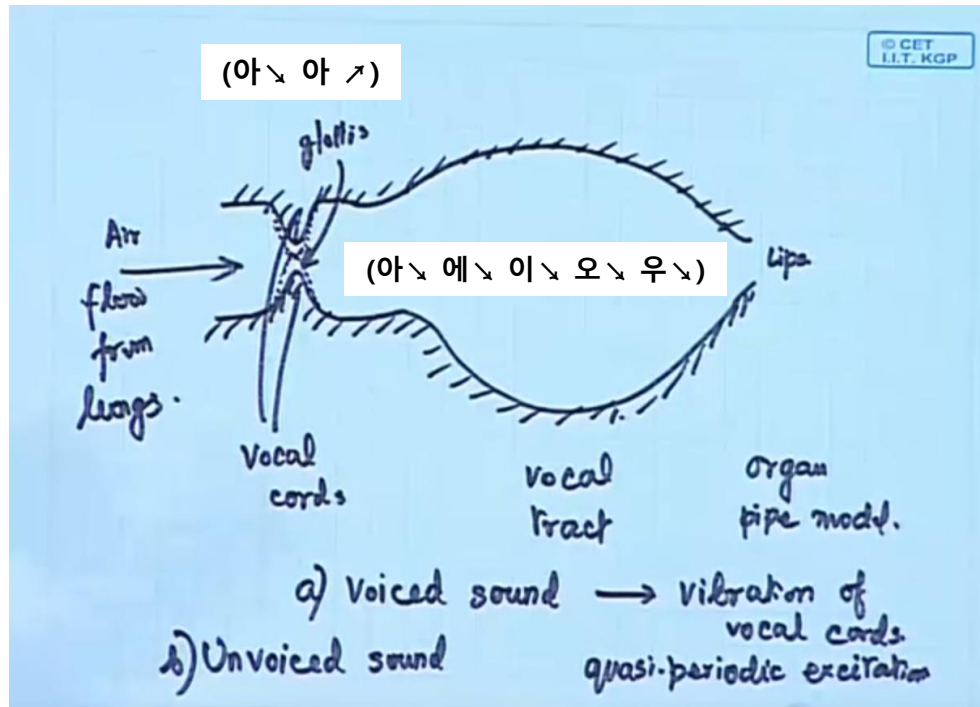 © CET
I.I.T. KGP
(아↘ 아 ↗)
glottis
Air
flow
from
lungs.
(아↘ 에↘ 이↘ 오↘ 우↘)
Lips
Vocal
cords
vocal
tract
organ
pipe model.
a) Voiced sound → vibration of
vocal cords.
quasi-periodic excitation
b) Unvoiced sound